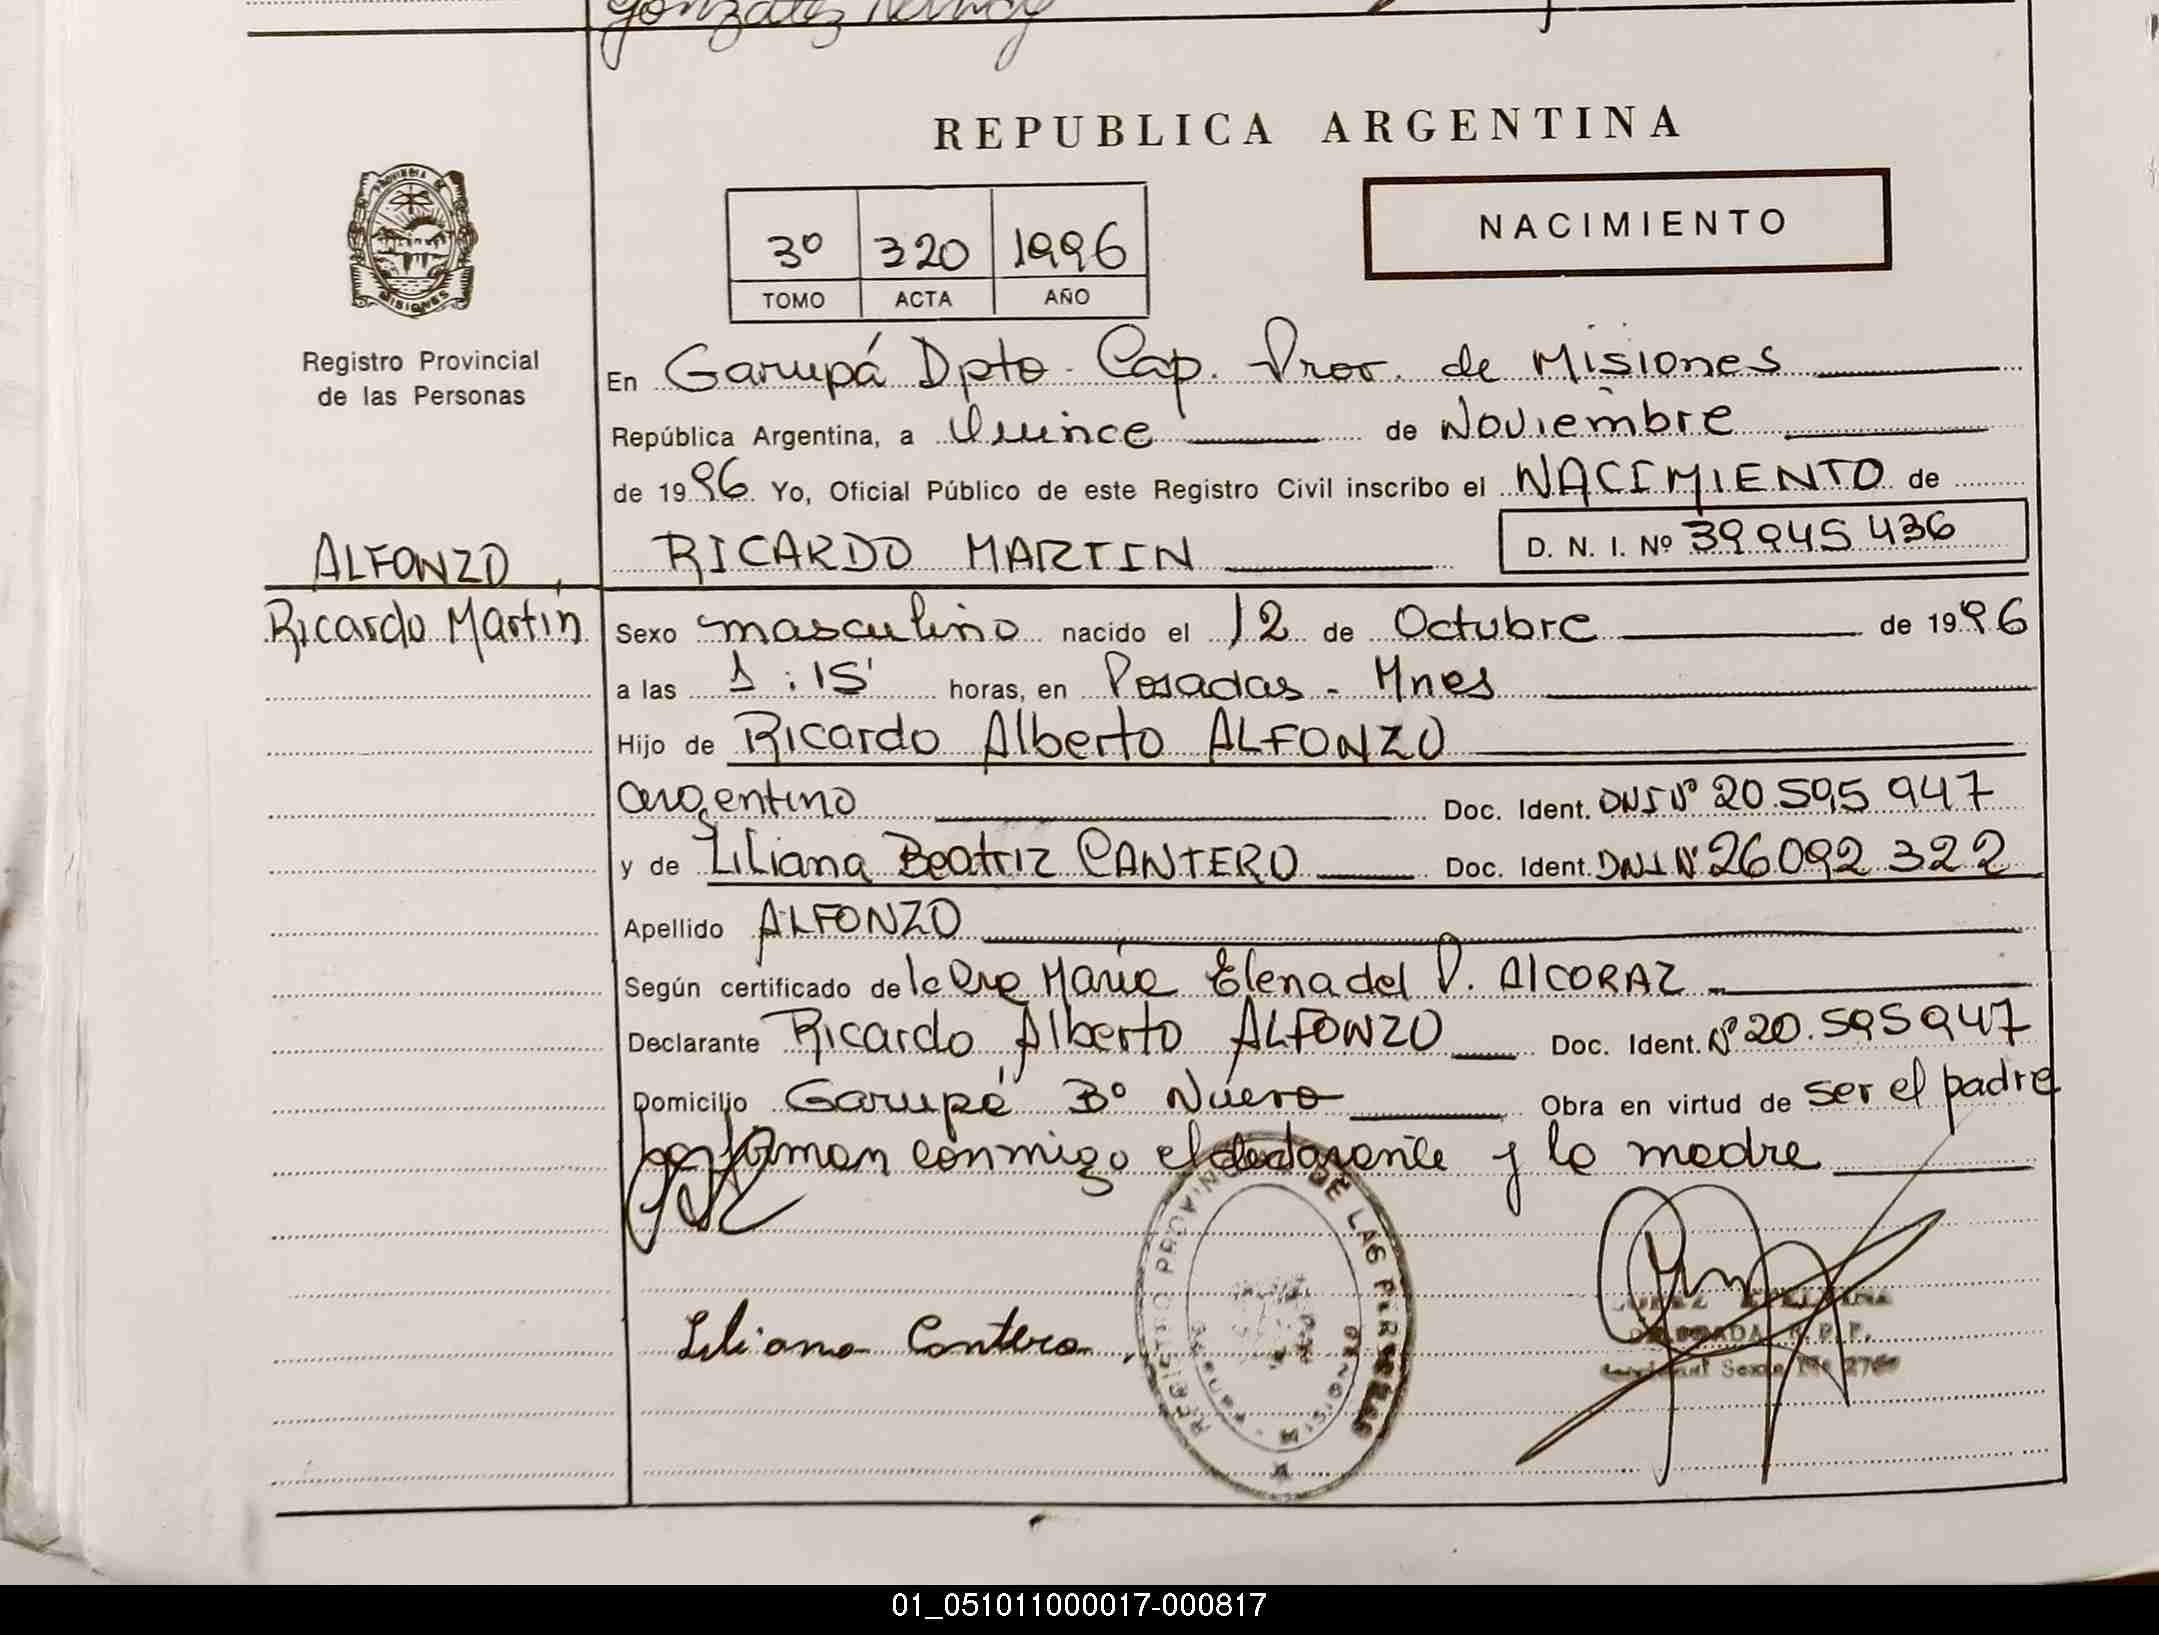 González
REPUBLICA ARGENTINA
NACIMIENTO
3º 320 1996
TOMO ACTA AÑO
PROVINCIA DE MISIONES
Registro Provincial
de las Personas
En Garupá Dpto. Cap. Prov. de Misiones
República Argentina, a Quince de Noviembre
de 1996 Yo, Oficial Público de este Registro Civil inscribo el NACIMIENTO de
RICARDO MARTIN D. N. I. Nº 39945436
ALFONZO,
Ricardo Martín
Sexo masculino nacido el 12 de Octubre de 1996
a las 1:15' horas, en Posadas - Mnes
Hijo de Ricardo Alberto ALFONZO
argentino Doc. Ident. DNI Nº 20.595947
y de Liliana Beatriz CANTERO Doc. Ident. DNI Nº 26092322
Apellido ALFONZO
Según certificado de la Dra María Elena del V. AlCORAZ
Declarante Ricardo Alberto ALFONZO Doc. Ident. Nº 20.595947
Domicilio Garupá Bº Nuevo Obra en virtud de ser el padre
firman conmigo el declarante y la madre
Liliana Cantero
REGISTRO PROVINCIAL DE LAS PERSONAS
MISIONES
R.P.P.
01_051011000017-000817